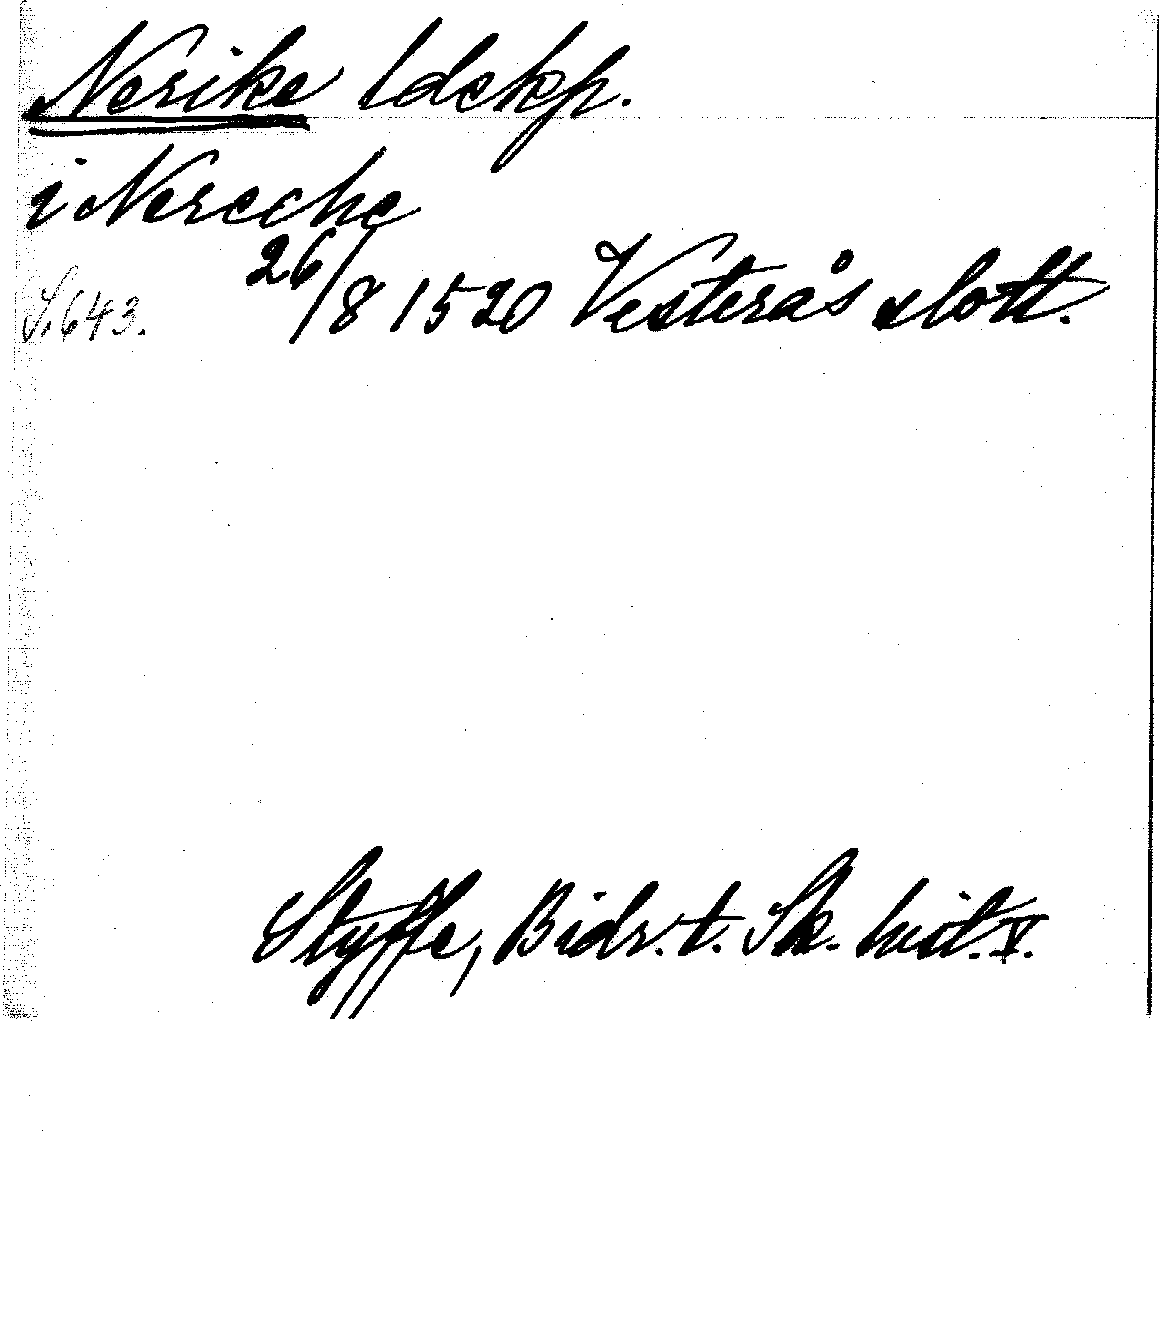 Nerike ldskp.
i Nereche
S. 643. 26/8 1520 Vesterås slott.
Styffe, Bidr. t. Sk. hist. V.